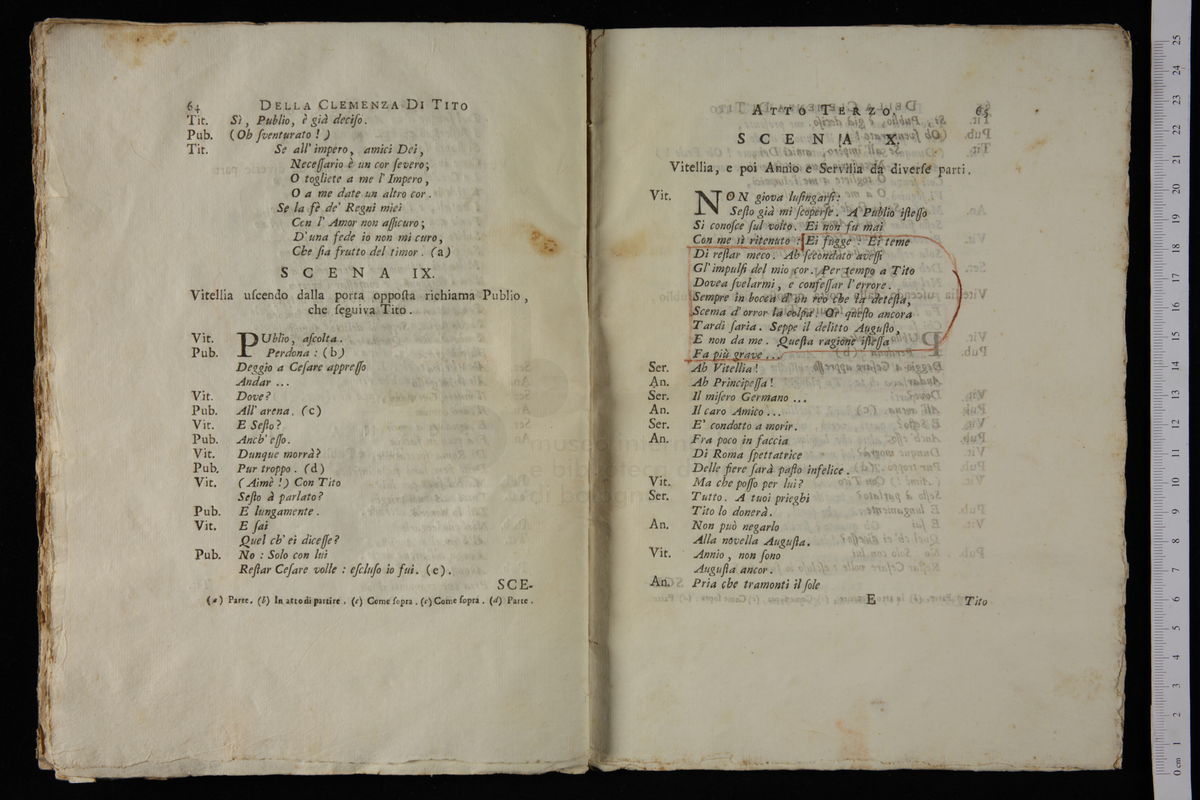 64 DELLA CLEMENZA DI TITO
Tit. Sì, Publio, è già deciſo.
Pub. (Oh ſventurato!)
Tit. Se all' impero, amici Dei,
Neceſſario è un cor ſevero;
O togliete a me l' Impero,
O a me date un altro cor.
Se la fè de' Regni miei
Con l' Amor non aſſicuro;
D' una fede io non mi curo,
Che ſia frutto del timor. (a)
SCENA IX.
Vitellia uſcendo dalla porta oppoſta richiama Publio,
che ſeguiva Tito.
Vit. PUblio, aſcolta.
Pub. Perdona: (b)
Deggio a Ceſare appreſſo
Andar ...
Vit. Dove?
Pub. All' arena. (c)
Vit. E Seſto?
Pub. Anch' eſſo.
Vit. Dunque morrà?
Pub. Pur troppo. (d)
Vit. (Aimè!) Con Tito
Seſto à parlato?
Pub. E lungamente.
Vit. E ſai
Quel ch' ei diceſſe?
Pub. No: Solo con lui
Reſtar Ceſare volle: eſcluſo io fui. (e).
SCE-
(a) Parte. (b) In atto di partire. (c) Come ſopra. (c) Come ſopra. (d) Parte.
ATTO TERZO. 65
SCENA X.
Vitellia, e poi Annio e Servilia da diverſe parti.
Vit. NON giova luſingarſi:
Seſto già mi ſcoperſe. A Publio iſteſſo
Si conoſce ſul volto. Ei non fu mai
Con me sì ritenuto: Ei fugge: Ei teme
Di reſtar meco. Ah ſecondato aveſſi
Gl' impulſi del mio cor. Per tempo a Tito
Dovea ſvelarmi, e confeſſar l' errore.
Sempre in bocca d' un reo che la deteſta,
Scema d' orror la colpa. Or queſto ancora
Tardi ſaria. Seppe il delitto Auguſto,
E non da me. Queſta ragione iſteſſa
Fa più grave ...
Ser. Ah Vitellia!
An. Ah Principeſſa!
Ser. Il miſero Germano ...
An. Il caro Amico ...
Ser. E' condotto a morir.
An. Fra poco in faccia
Di Roma ſpettatrice
Delle fiere ſarà paſto infelice.
Vit. Ma che poſſo per lui?
Ser. Tutto. A tuoi prieghi
Tito lo donerà.
An. Non può negarlo
Alla novella Auguſta.
Vit. Annio, non ſono
Auguſta ancor.
An. Pria che tramonti il ſole
E Tito